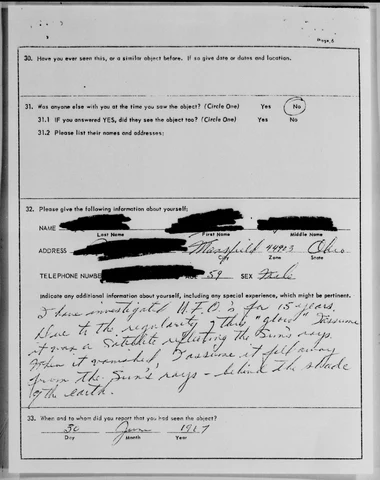 Page 6
30. Have you ever seen this, or a similar object before. If so give date or dates and location.
31. Was anyone else with you at the time you saw the object? (Circle One) Yes No
31.1 IF you answered YES, did they see the object too? (Circle One) Yes No
31.2 Please list their names and addresses:
32. Please give the following information about yourself:
NAME
Last Name First Name Middle Name
ADDRESS Mansfield 44903 Ohio
City Zone State
TELEPHONE NUMBER AGE 59 SEX Male
Indicate any additional information about yourself, including any special experience, which might be pertinent.
I have investigated U.F.O.'s for 15 years.
Due to the regularity of this "glow" I assume
it was a satellite reflecting the Sun's rays.
When it vanished, I assume it fell away
from the Sun's rays - behind the shade
of the earth.
33. When and to whom did you report that you had seen the object?
30 June 1967
Day Month Year